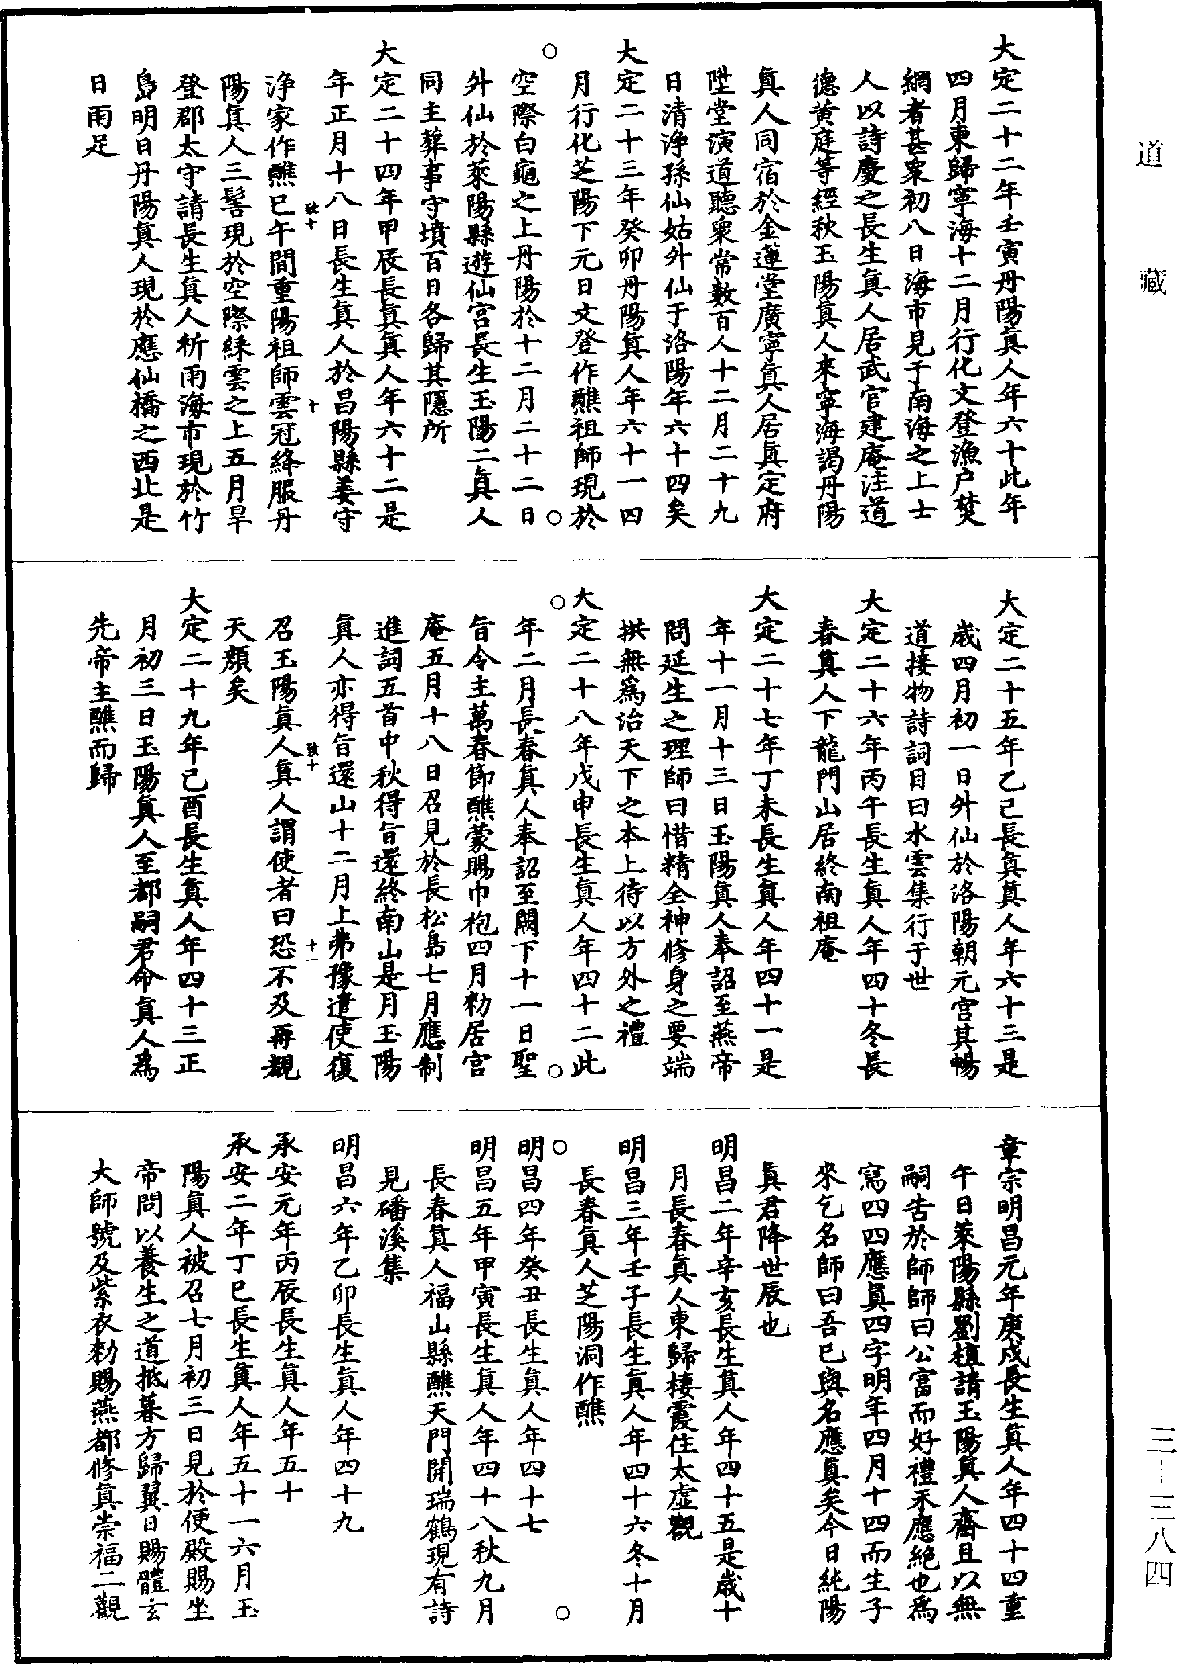 道藏
三—三八四
大定二十二年壬寅丹陽真人年六十此年
四月東歸寧海十二月行化文登漁户焚
網者甚衆初八日海市見于南海之上士
人以詩慶之長生真人居武官建庵注道
德黄庭等經秋玉陽真人來寧海謁丹陽
真人同宿於金蓮堂廣寧真人居真定府
陞堂演道聽衆常數百人十二月二十九
日清淨孫仙姑外仙于洛陽年六十四矣
大定二十三年癸卯丹陽真人年六十一四
月行化芝陽下元日文登作醮祖師現於
空際白龜之上丹陽於十二月二十二日
外仙於萊陽縣遊仙宮長生玉陽二真人
同主葬事守墳百日各歸其隱所
大定二十四年甲辰長真真人年六十二是
年正月十八日長生真人於昌陽縣姜守
淨家作醮巳午間重陽祖師雲冠絳服丹
陽真人三髻現於空際綵雲之上五月旱
登郡太守請長生真人祈雨海市現於竹
島明日丹陽真人現於應仙橋之西北是
日雨足
大定二十五年乙巳長真真人年六十三是
歲四月初一日外仙於洛陽朝元宮其暢
道接物詩詞目曰水雲集行于世
大定二十六年丙午長生真人年四十冬長
春真人下龍門山居終南祖庵
大定二十七年丁未長生真人年四十一是
年十一月十三日玉陽真人奉詔至燕帝
問延生之理師曰惜精全神修身之要端
拱無爲治天下之本上待以方外之禮
大定二十八年戊申長生真人年四十二此
年二月長春真人奉詔至闕下十一日聖
旨令主萬春節醮蒙賜巾袍四月勑居宮
庵五月十八日召見於長松島七月應制
進詞五首中秋得旨還終南山是月玉陽
真人亦得旨還山十二月上弗豫遣使復
召玉陽真人真人謂使者曰恐不及再覩
天顔矣
大定二十九年己酉長生真人年四十三正
月初三日玉陽真人至都嗣君命真人爲
先帝主醮而歸
章宗明昌元年庚戌長生真人年四十四重
午日萊陽縣劉植請玉陽真人齋且以無
嗣告於師師曰公富而好禮不應絶也爲
寫四四應真四字明年四月十四而生子
來乞名師曰吾已與名應真矣今日純陽
真君降世辰也
明昌二年辛亥長生真人年四十五是歲十
月長春真人東歸棲霞住太虛觀
明昌三年壬子長生真人年四十六冬十月
長春真人芝陽洞作醮
明昌四年癸丑長生真人年四十七
明昌五年甲寅長生真人年四十八秋九月
長春真人福山縣醮天門開瑞鶴現有詩
見磻溪集
明昌六年乙卯長生真人年四十九
承安元年丙辰長生真人年五十
承安二年丁巳長生真人年五十一六月玉
陽真人被召七月初三日見於便殿賜坐
帝問以養生之道抵暮方歸翼日賜體玄
大師號及紫衣勑賜燕都修真崇福二觀